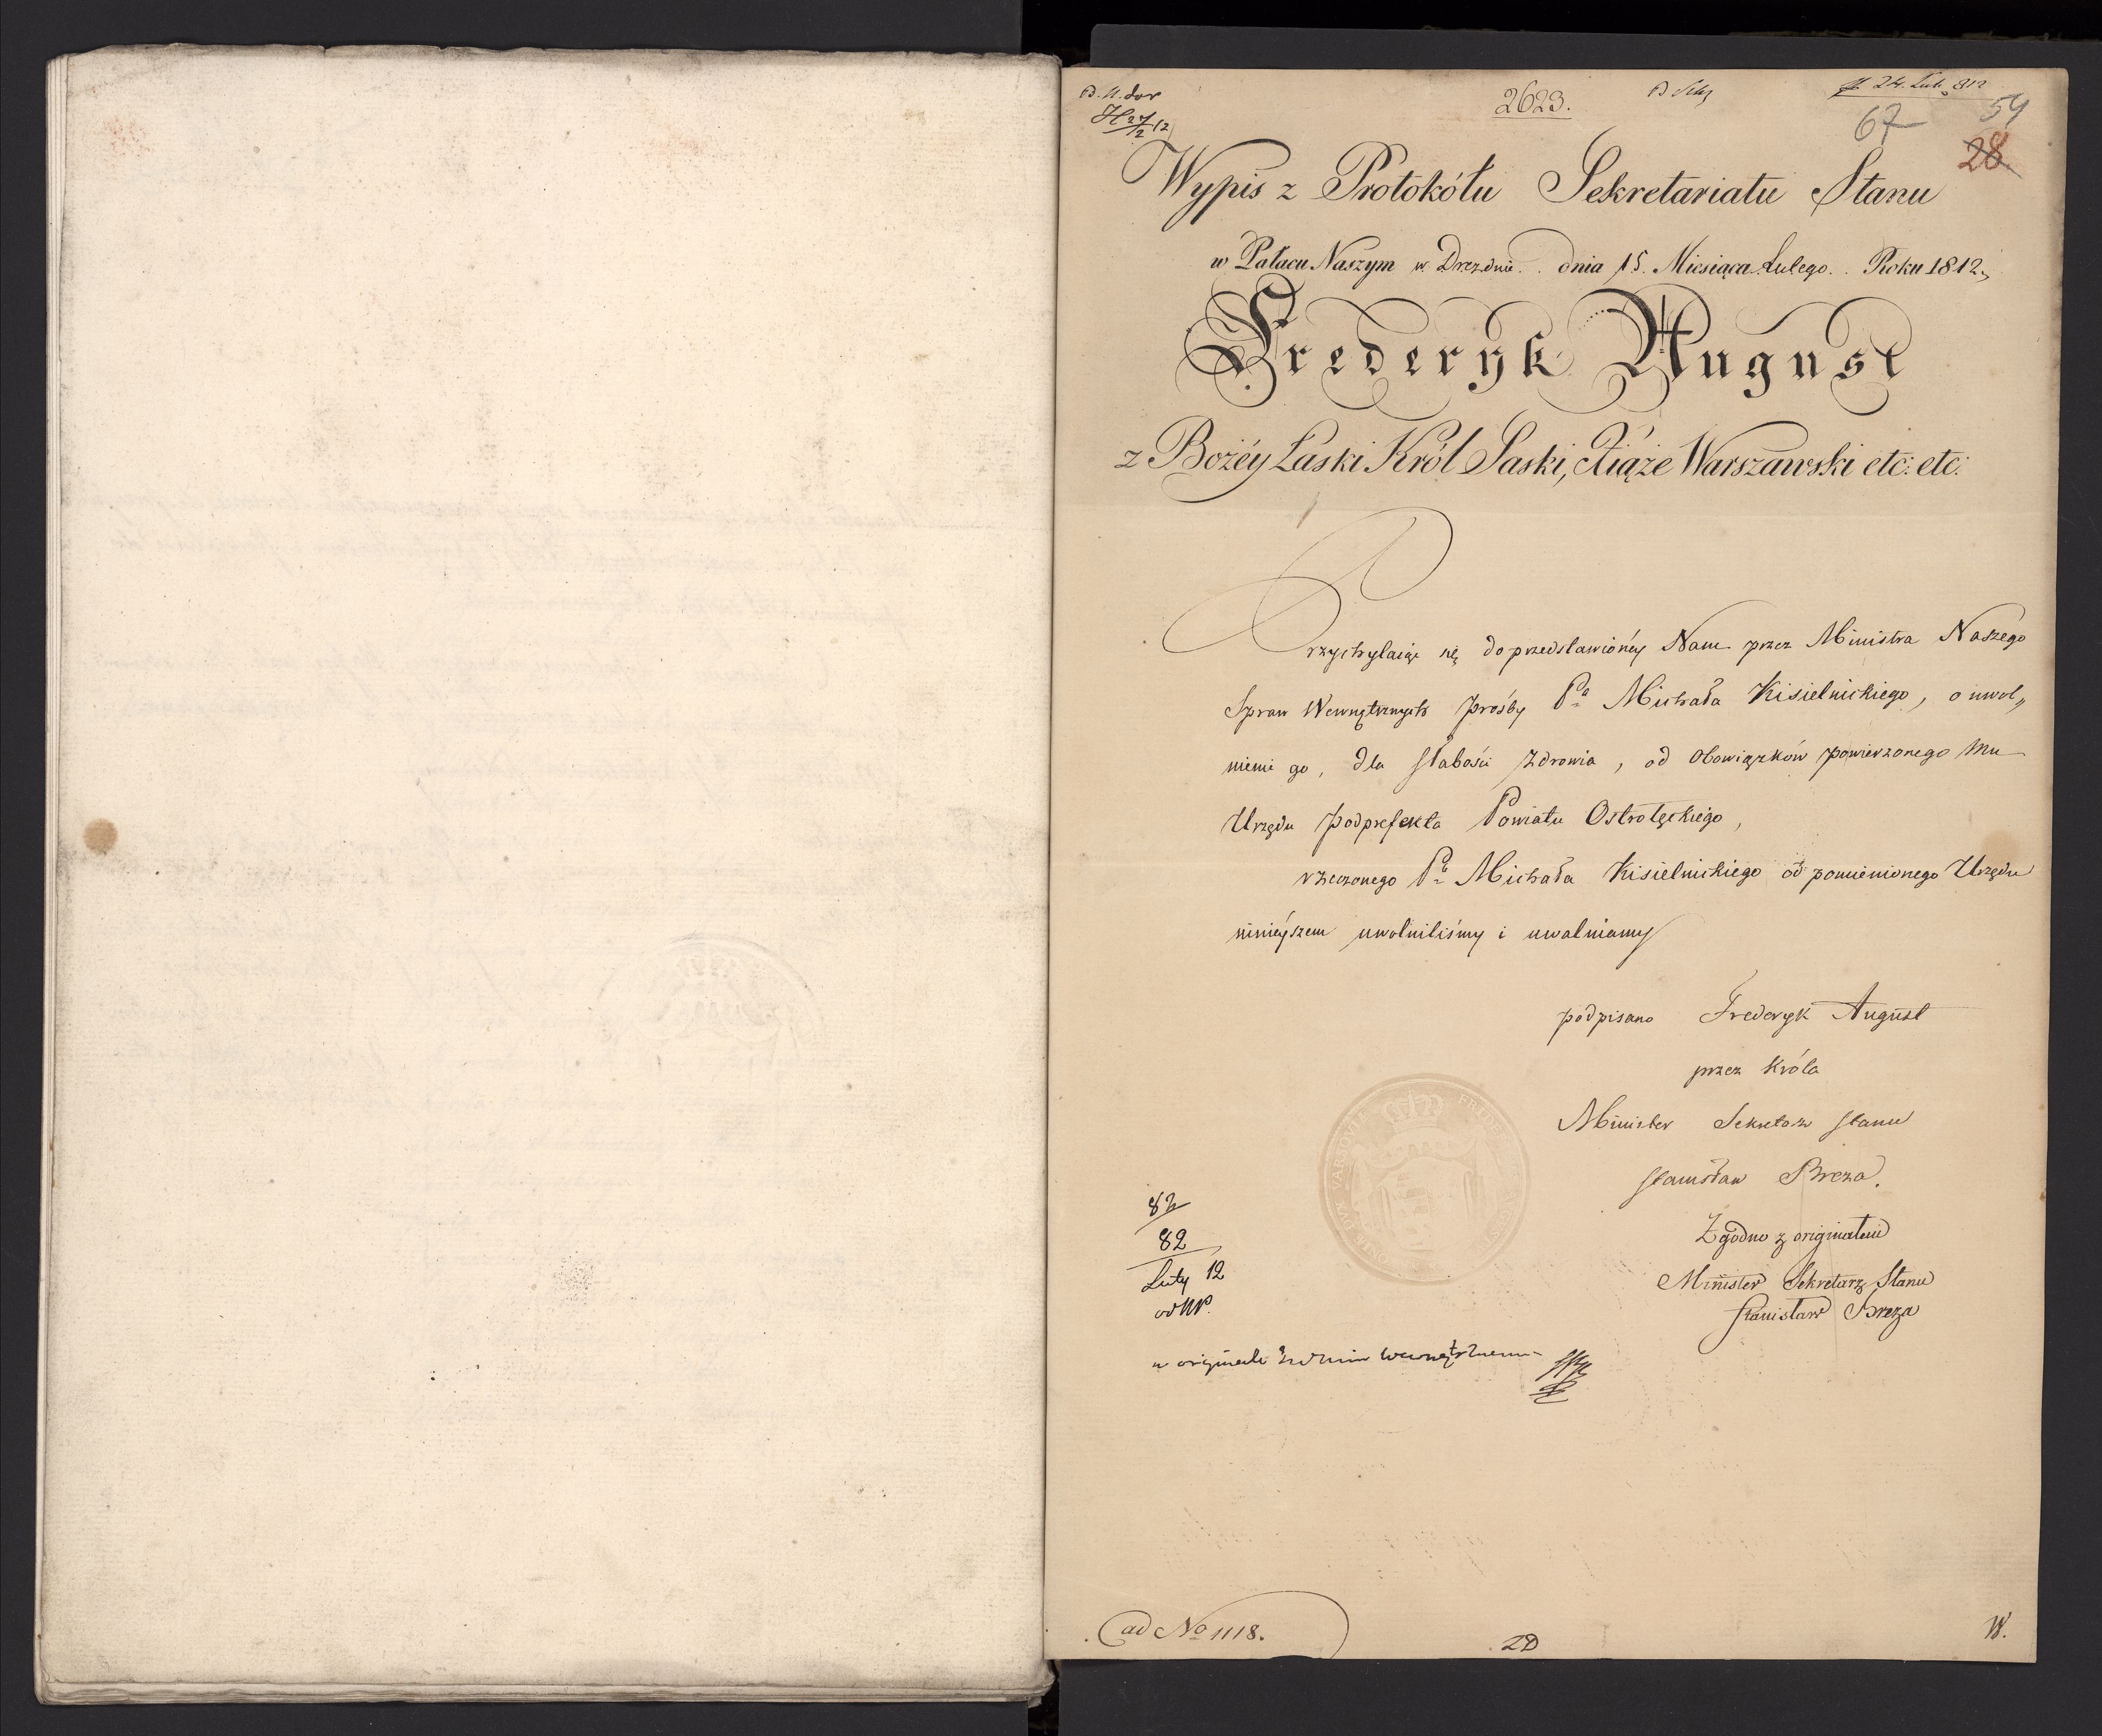 2623.
24. Lut. 812
67 54
28
Wypis z Protokółu Sekretariatu Stanu
w Pałacu Naszym w Dreznie dnia 15. Miesiąca Lutego Roku 1812.
Frederyk August
z Bożéy Łaski Król Saski, Xiąże Warszawski etc: etc:
Przychylaiąc się do przedstawionéy Nam przez Ministra Naszego
Spraw Wewnętrznych prośby Pa Michała Kisielnickiego, o uwol„
nienie go, dla słabości zdrowia, od obowiązków powierzonego Mu
Urzędu podprefekta Powiatu Ostrołęckiego,
rzeczonego Pa Michała Kisielnickiego od pomienionego Urzędu
ninieyszem uwolniliśmy i uwalniamy
podpisano Frederyk August
przez Króla
Minister Sekretarz Stanu
Stanisław Breza.
Zgodno z originałem
Minister Sekretarz Stanu
Stanisław Breza
82
82
Luty 12
w originale
ad No 1118.
28
W.